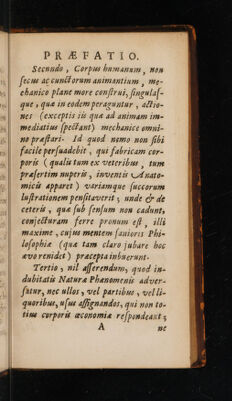 PRÆFATIO.
Secundo, Corpus humanum, non
secus ac cunctorum animantium, me-
chanico plane more construi, singulas-
que, quæ in eodem peraguntur, actio-
nes (exceptis iis quæ ad animam im-
mediatius spectant) mechanice omni-
no præstari. Id quod nemo non sibi
facile persuadebit, qui fabricam cor-
poris (qualis tum ex veteribus, tum
præsertim nuperis, inventis Anato-
micis apparet) variamque succorum
lustrationem pensitaverit; unde & de
ceteris, quæ sub sensum non cadunt,
conjecturam ferre pronum est, illi
maxime, cujus mentem sanioris Phi-
losophiæ (quæ tam claro jubare hoc
ævo renidet) præcepta inbuerunt.
Tertio, nil asserendum, quod in-
dubitatis Naturæ Phænomenis adver-
setur, nec ullos, vel partibus, vel li-
quoribus, usus assignandos, qui non to-
tius corporis œconomiæ respondeant;
A
ne